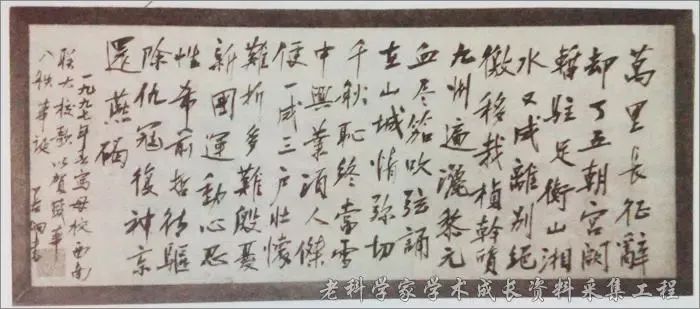 萬里長征辭
却了五朝宮闕
暫駐足衡山湘
水又成離別絕
徼移栽楨幹質
九州遍灑黎元
血尽笳吹弦誦
在山城情弥切
千秋恥終當雪
中興業須人傑
便一成三戶壯懷
難折多難殷憂
新國運動心忍
性希前哲待驅
除仇寇復神京
還燕碣
一九九七年春寫母校西南
联大校歌以賀蔭華
八秩華誕
老科学家学术成长资料采集工程